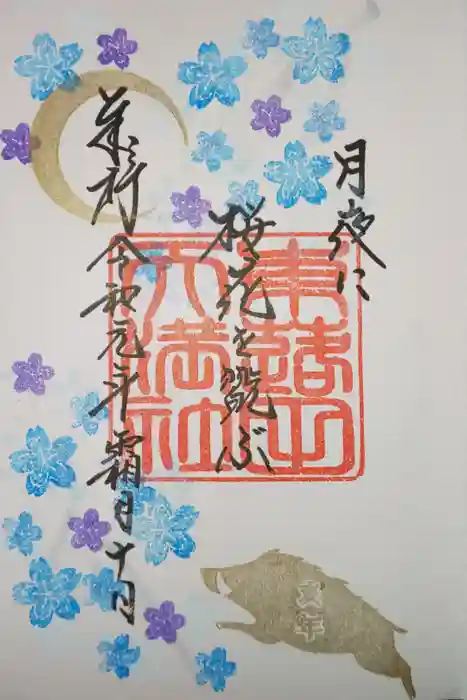 月夜に
桜花を翫ぶ
奉拝 令和元年 霜月十日
東蕗田
天満社
亥年